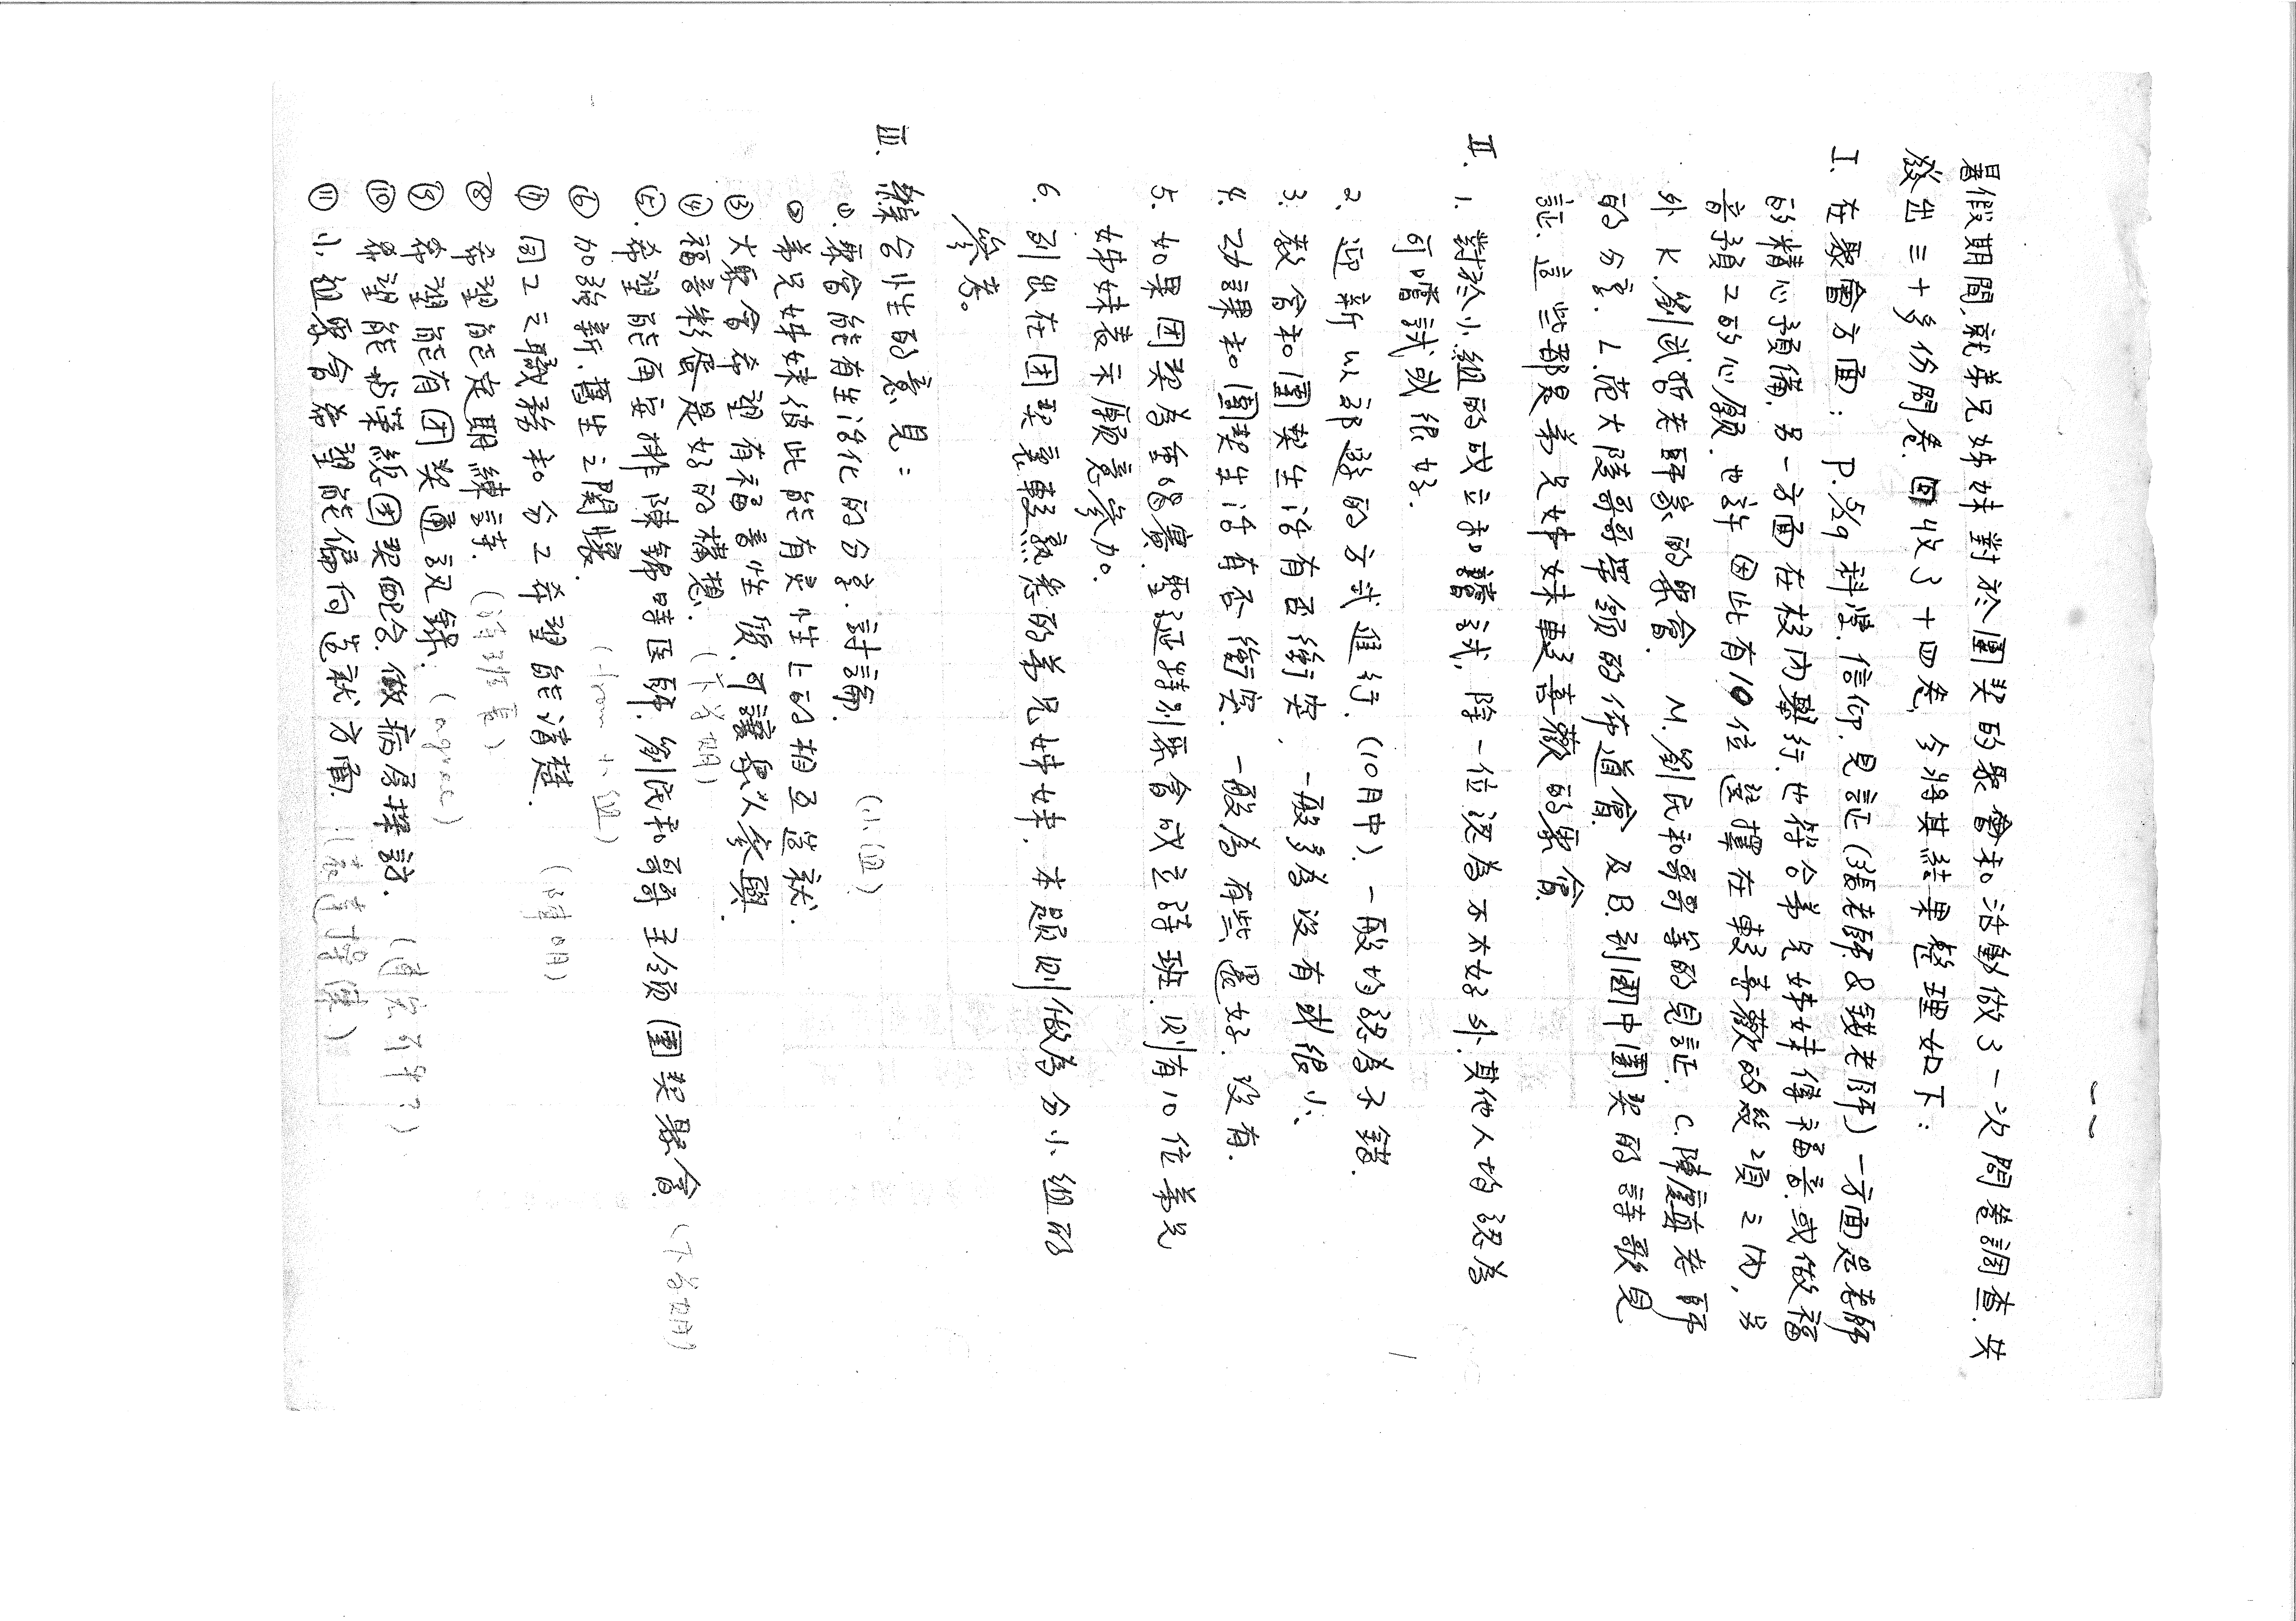 暑假期間,就弟兄姊妹對於團契的聚會和活動做了一次問卷調查.共
發出三十多份問卷,回收了十四卷,今將其結果整理如下:
I. 在聚會方面: P.5/9 科學.信仰.見証(張老師&錢老師)一方面是老師
的精心預備,另一方面在校內舉行.也符合弟兄姊妹傳福音或做福
音預工的心願.也許因此有10位選擇在較喜歡的幾項之內,另
外 K.劉試哲老師家的聚會. M.劉民和哥哥等的見証. C.陳慶真老師
的分享. L.范大陵哥哥帶領的佈道會.及B.到國中團契的詩歌見
証.這些都是弟兄姊妹較喜歡的聚會.
II. 1. 對於小組的成立和嘗試,除一位認為不太好外.其他人均認為
可嚐試或很好.
2. 迎新以郊遊的方式進行.(10月中).一般均認為不錯.
3. 教會和團契生活有否衝突.一般多為沒有或很小.
4. 功課和團契生活有否衝突.一般為有些還好.沒有.
5. 如果团契為金鴻賓.聖诞特別聚會成立詩班.則有10位弟兄
姊妹表示願意參加.
6. 列出在团契裏較熟悉的弟兄姊妹.本題則做為分小組的
參考。
III. 綜合性的意見:
⑴. 聚會能有生活化的分享.討論. (小組)
⑵ 弟兄姊妹彼此能有灵性上的相互造就.
⑶ 大聚會希望有福音性質.可讓易以參與.
⑷ 福音影展是好的構想. (下学期)
⑸. 希望能再安排陳錦時医師.劉民和哥哥主領團契聚會 (下学期)
⑹ 加強新.舊生之關懷. (from 小組)
⑺ 同工之職務和分工希望能清楚. (陣明)
⑻ 希望能定期練詩. (詩班裏)
⑼ 希望能有团契通訊錄. (agree)
⑽ 希望能与葉統团契配合.做病房探訪.
⑾ 小組聚會希望能偏向造就方面.